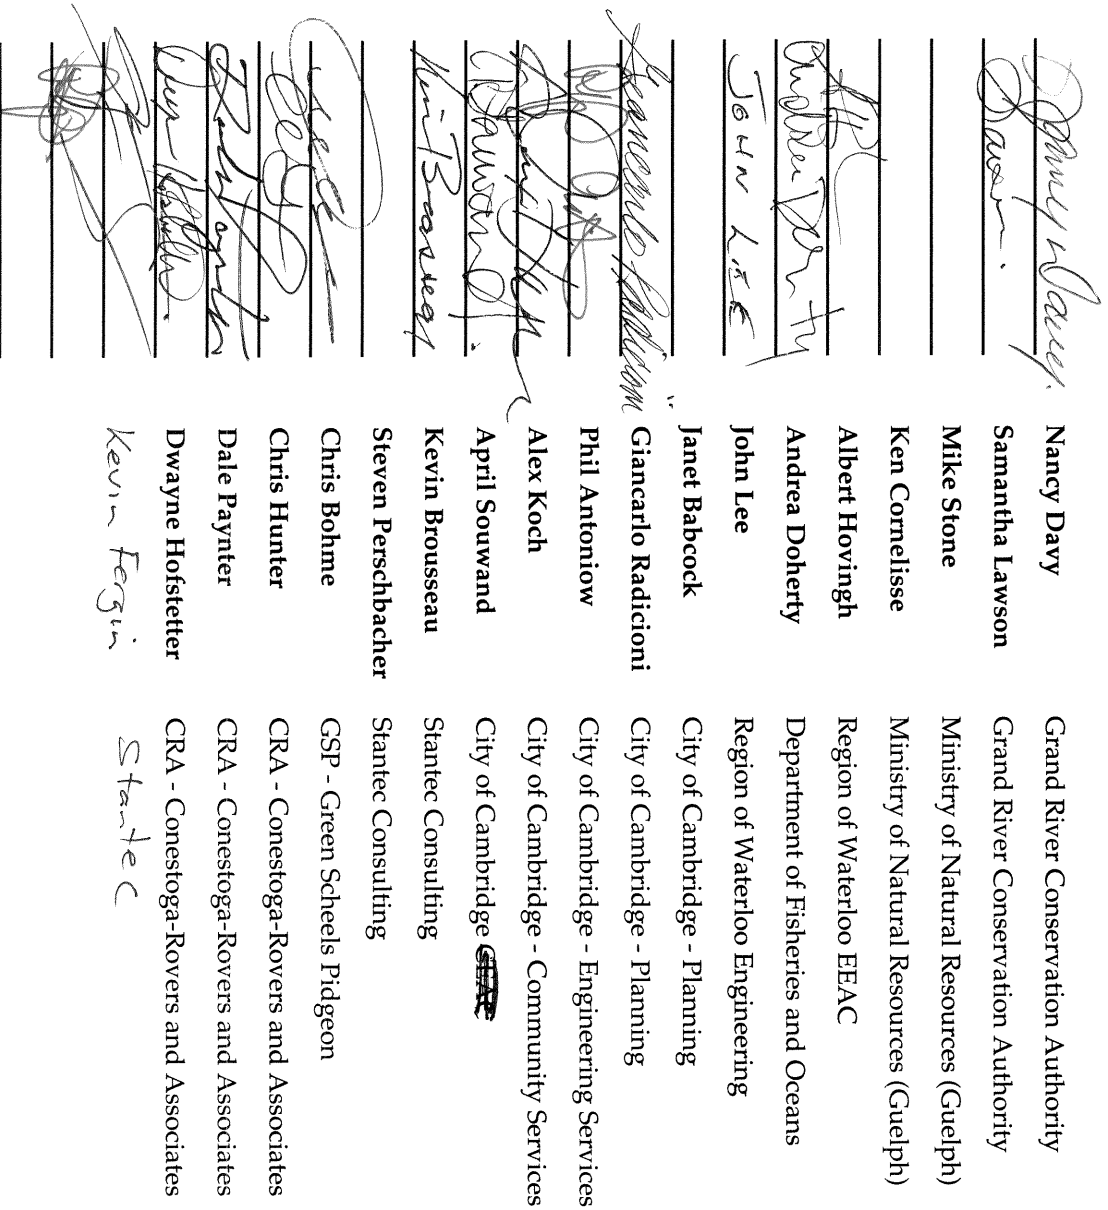 Nancy Davy. Nancy Davy Grand River Conservation Authority
Samantha Lawson Grand River Conservation Authority
Mike Stone Ministry of Natural Resources (Guelph)
Ken Cornelisse Ministry of Natural Resources (Guelph)
Albert Hovingh Region of Waterloo EEAC
Andrea Doherty Andrea Doherty Department of Fisheries and Oceans
JOHN LEE John Lee Region of Waterloo Engineering
Janet Babcock City of Cambridge - Planning
Giancarlo Radicioni Giancarlo Radicioni City of Cambridge - Planning
Phil Antoniow City of Cambridge - Engineering Services
Alex Koch City of Cambridge - Community Services
April Souwand City of Cambridge
Kevin Brousseau Stantec Consulting
Steven Perschbacher Stantec Consulting
Chris Bohme GSP - Green Scheels Pidgeon
Chris Hunter CRA - Conestoga-Rovers and Associates
Dale Paynter CRA - Conestoga-Rovers and Associates
Dwayne Hofstetter CRA - Conestoga-Rovers and Associates
Kevin Fergin Stantec